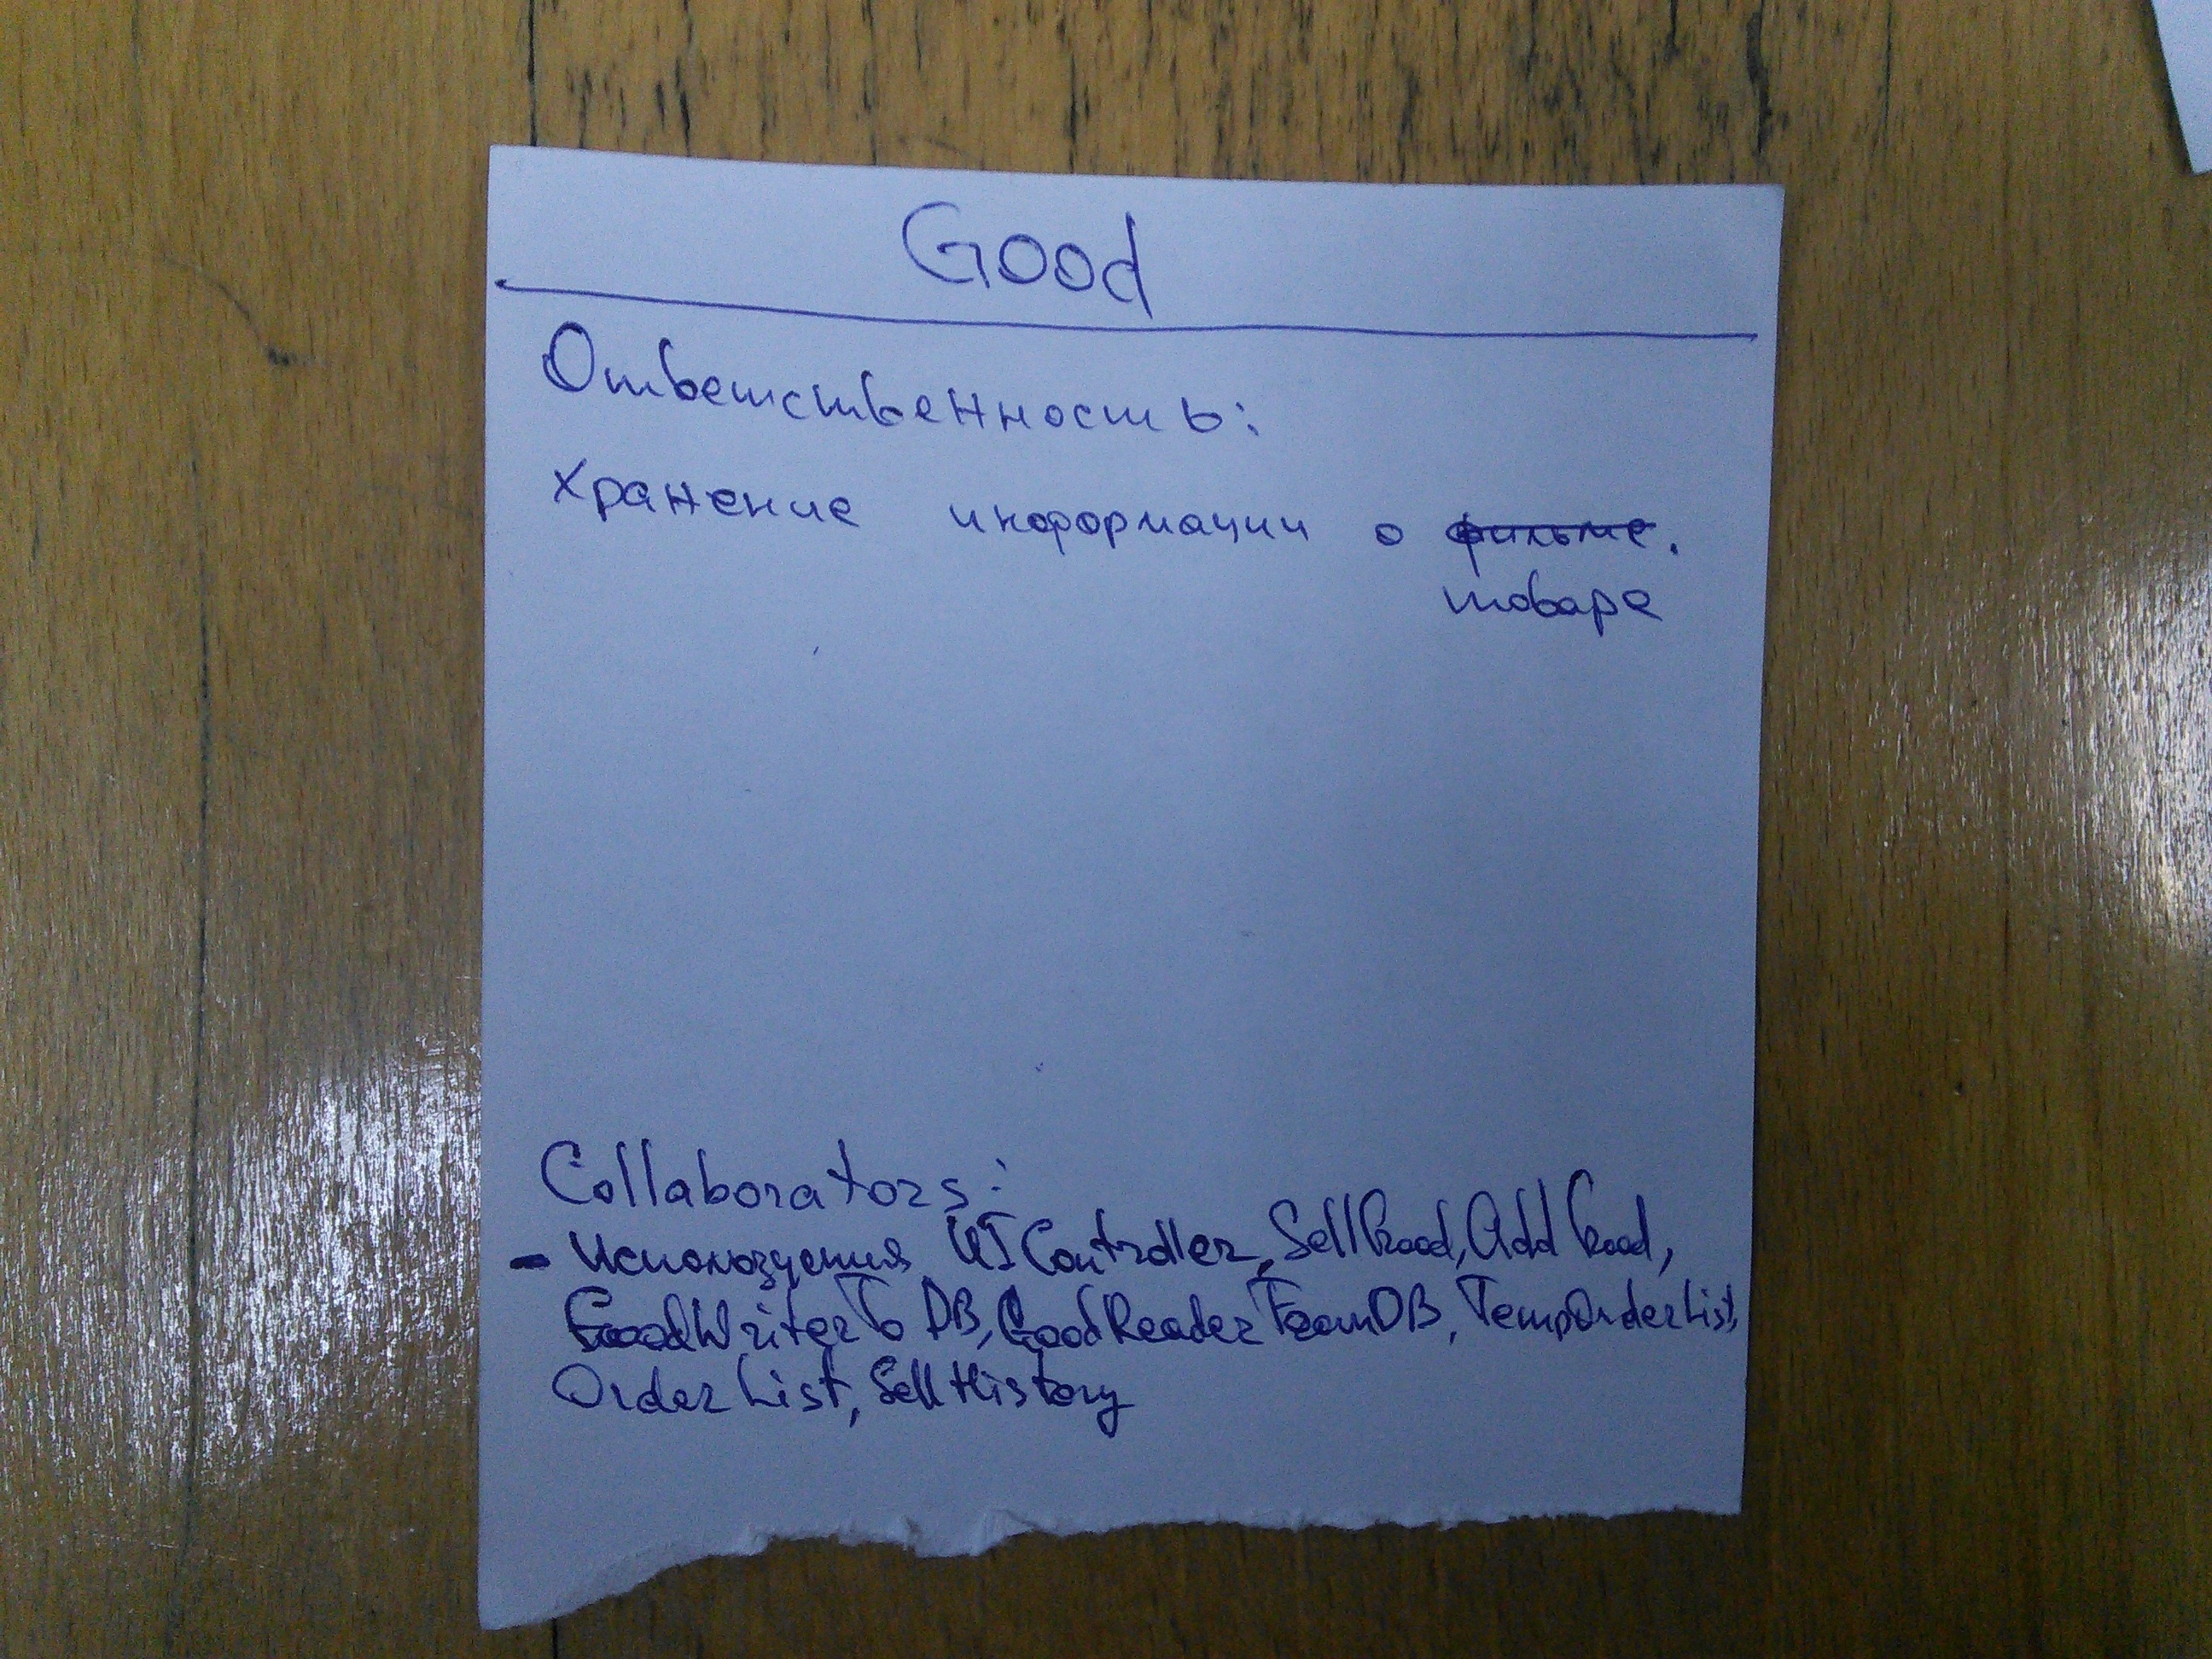 Good
Ответственность:
Хранение информации о фильме.
товаре
Collaborators:
- UI Controller, SellGood, AddGood,
GoodWriterToDB, GoodReaderFromDB, TempOrderList,
OrderList, SellHistory